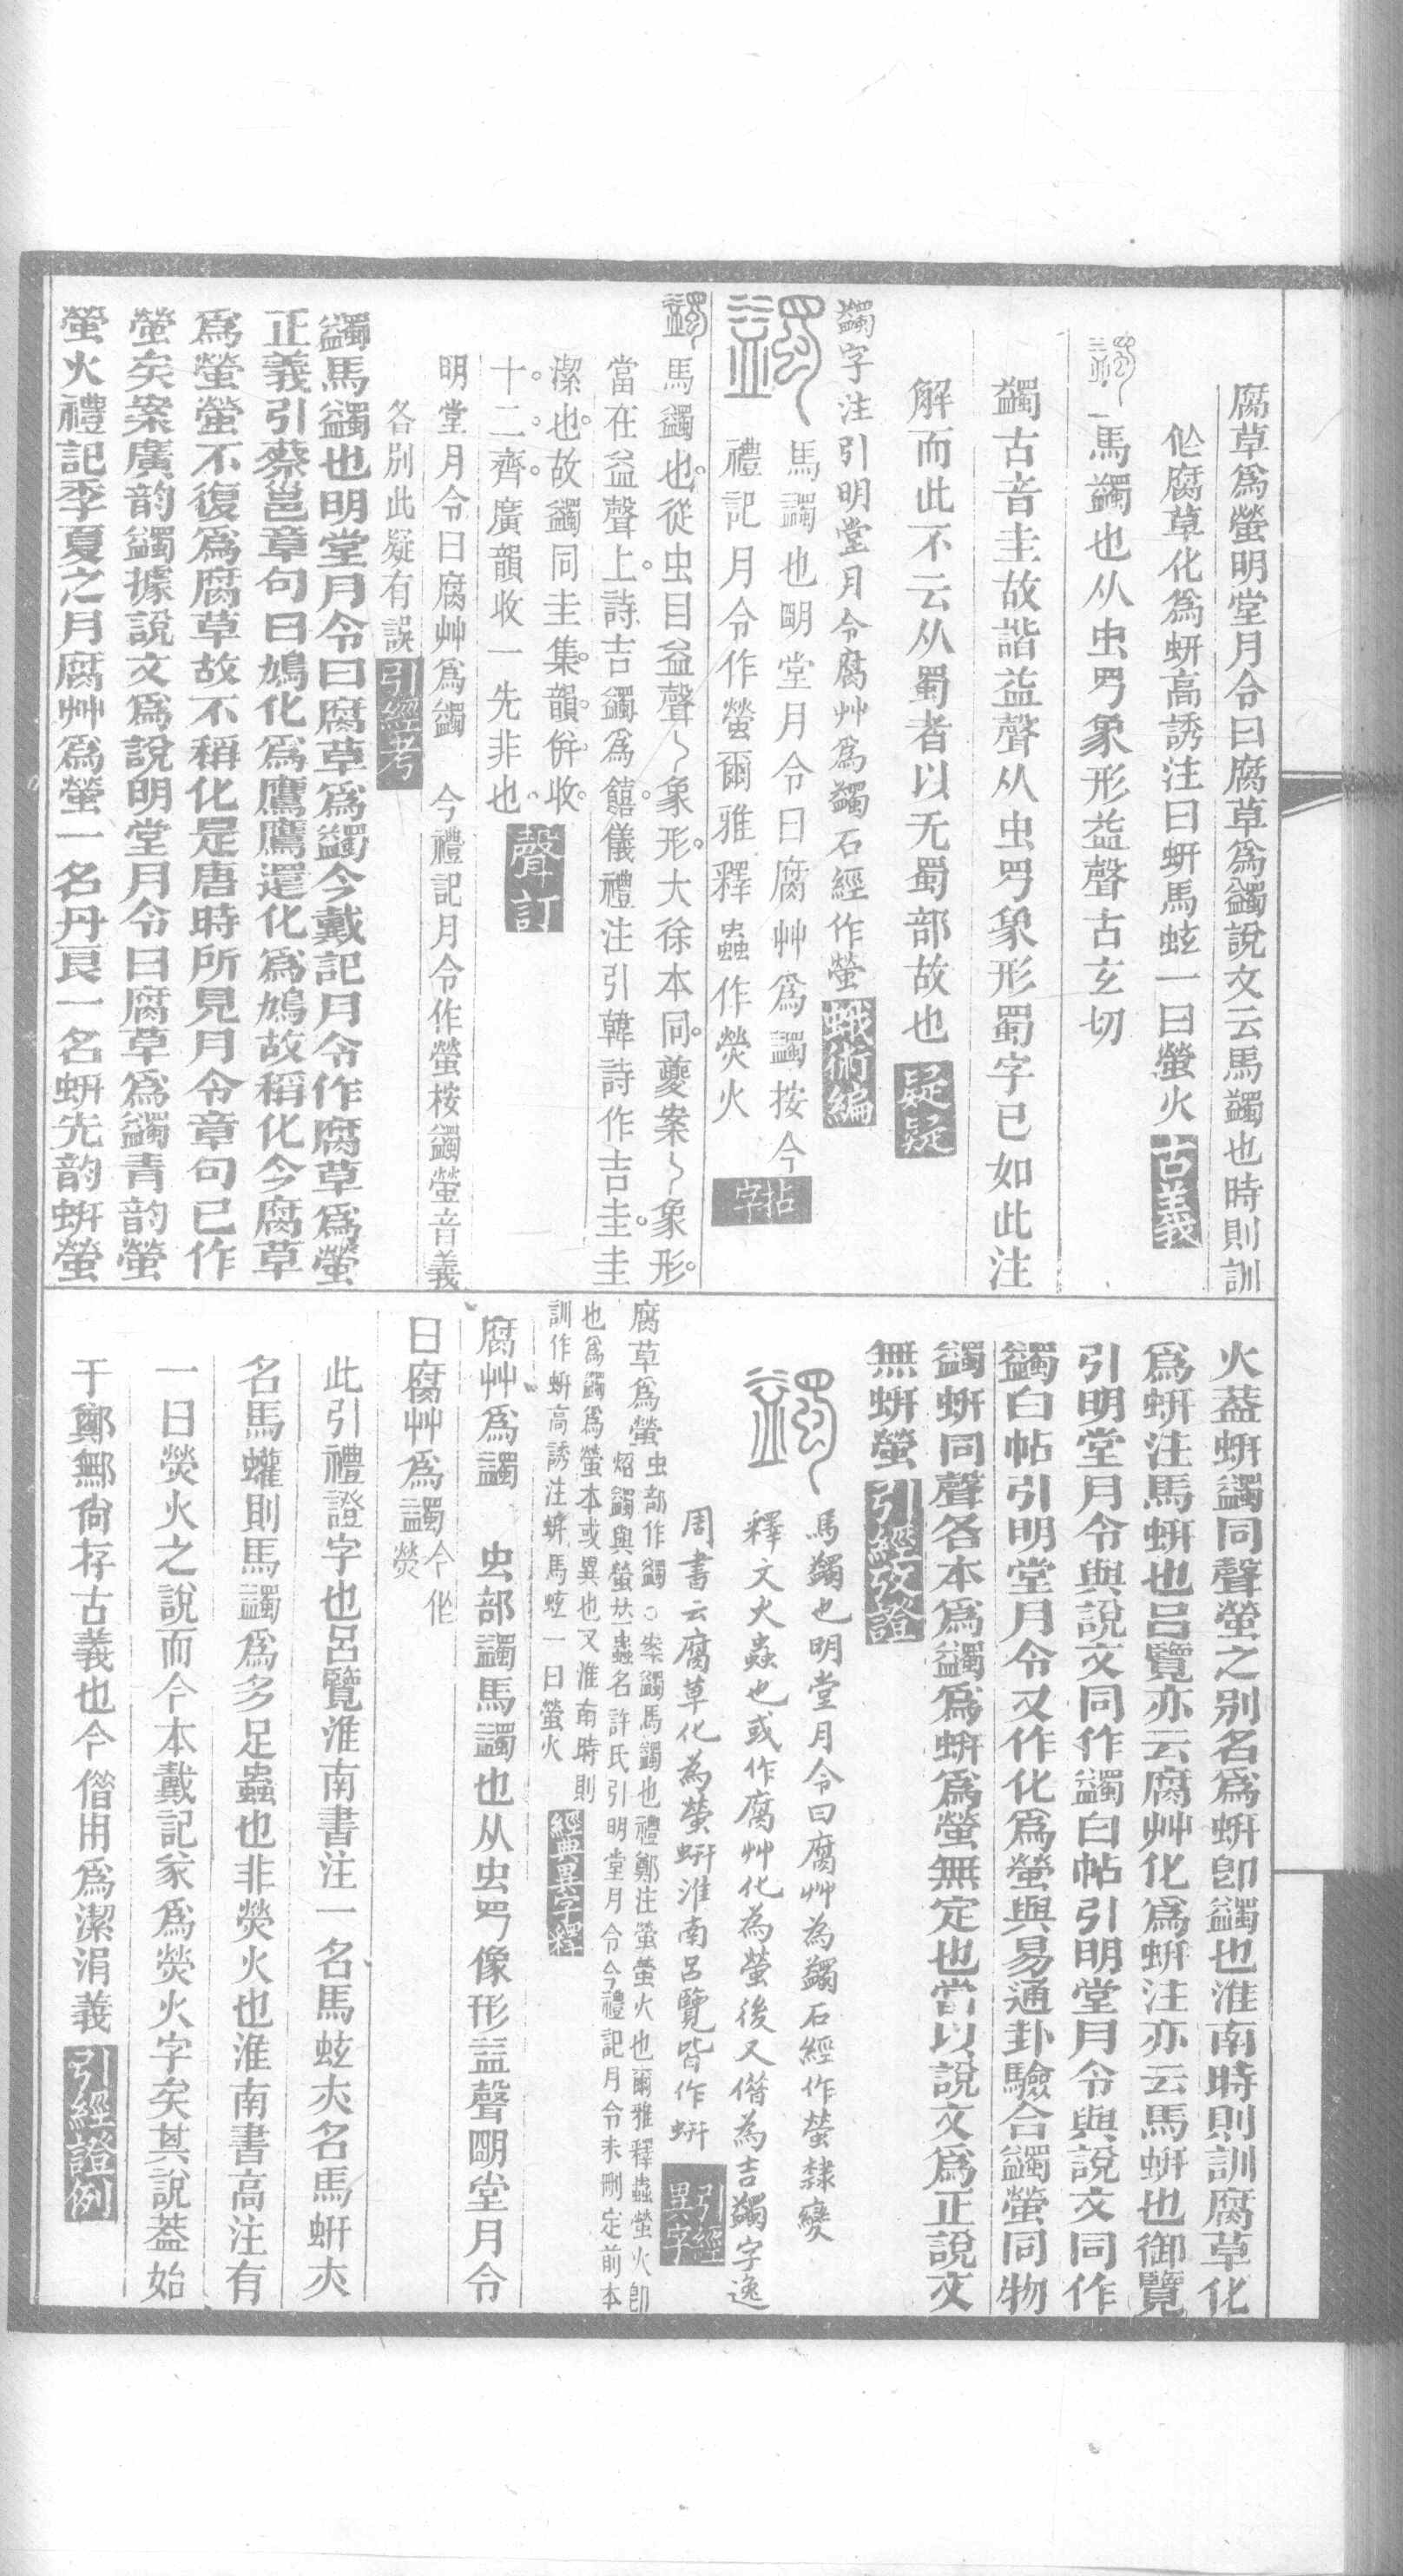 腐草爲螢明堂月令曰腐草爲蠲說文云馬蠲也時則訓
㑅腐草化爲蚈高誘注曰蚈馬蚿一曰螢火古義
馬蠲也从虫罒象形益聲古玄切
蠲古音圭故諧益聲从虫罒象形蜀字已如此注
解而此不云从蜀者以无蜀部故也疑疑
蠲字注引明堂月令腐艸爲蠲石經作螢蛾術編
馬蠲也朙堂月令曰腐艸爲蠲按今
禮記月令作螢爾雅釋蟲作熒火拈字
馬蠲也從虫目益聲象形大徐本同夔案象形
當在益聲上詩吉蠲爲饎儀禮注引韓詩作吉圭圭
潔也故蠲同圭集韻併收
十二齊廣韻收一先非也聲訂
明堂月令曰腐艸爲蠲 今禮記月令作螢桉蠲螢音義
各别此疑有誤引經考
蠲馬蠲也明堂月令曰腐草爲蠲今戴記月令作腐草爲螢
正義引蔡邕章句曰鳩化爲鷹鷹還化爲鳩故稱化今腐草
爲螢螢不復爲腐草故不稱化是唐時所見月令章句已作
螢矣案廣韵蠲據說文爲說明堂月令曰腐草爲蠲青韵螢
螢火禮記季夏之月腐艸爲螢一名丹良一名蚈先韵蚈螢
火葢蚈蠲同聲螢之别名爲蚈卽蠲也淮南時則訓腐草化
爲蚈注馬蚈也呂覽亦云腐艸化爲蚈注亦云馬蚈也御覽
引明堂月令與說文同作蠲白帖引明堂月令與說文同作
蠲白帖引明堂月令又作化爲螢與易通卦驗合蠲螢同物
蠲蚈同聲各本爲蠲爲蚈爲螢無定也當以說文爲正說文
無蚈螢引經攷證
馬蠲也明堂月令曰腐艸為蠲石經作螢隸變
釋文火蟲也或作腐艸化為螢後又僭為吉蠲字逸
周書云腐草化為螢蚈淮南呂覽皆作蚈引經異字
腐草爲螢虫部作蠲○案蠲馬蠲也禮鄭注螢螢火也爾雅釋蟲螢火卽
炤蠲與螢蟲名許氏引明堂月令今禮記月令未刪定前本
也爲蠲爲螢本或異也又淮南時則
訓作蚈高誘注蚈馬蚿一曰螢火經典異字釋
腐艸爲蠲 虫部蠲馬蠲也从虫罒像形益聲朙堂月令
曰腐艸爲蠲今㑅熒
此引禮證字也呂覽淮南書注一名馬蚿夶名馬蚈夶
名馬蠸則馬蠲爲多足蟲也非熒火也淮南書高注有
一曰熒火之說而今本戴記㒸爲熒火字矣其說葢始
于鄭鄦尙存古義也今僭用爲潔涓義引經證例